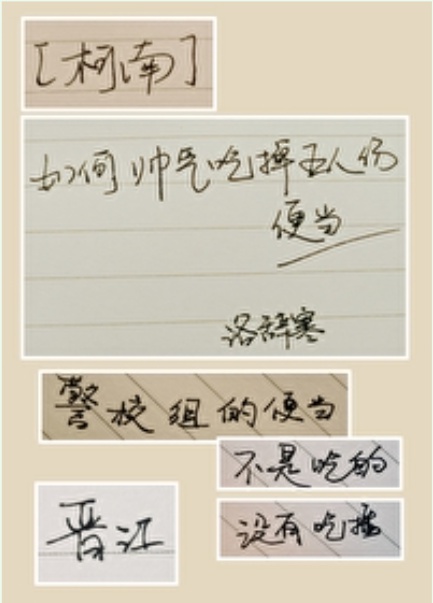 [柯南]
如何帅气吃掉五人份
便当
洛辞寒
警校组的便当
不是吃的
没有吃播
晋江